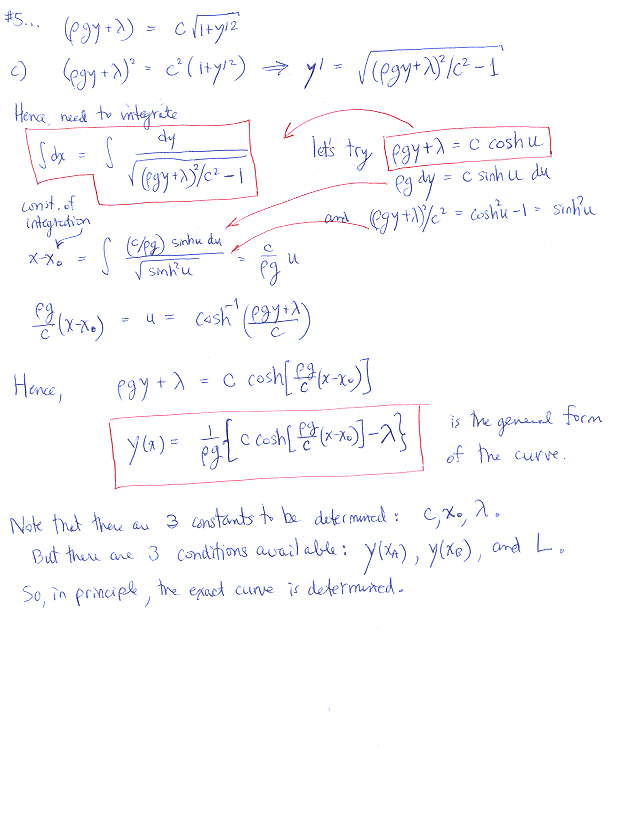 #5... (ρgy+λ) = c √(1+y'²)
c) (ρgy+λ)² = c²(1+y'²) ⇒ y' = √((ρgy+λ)²/c² - 1)
Hence, need to integrate
∫dx = ∫ dy / √((ρgy+λ)²/c² - 1)
let's try ρgy+λ = c cosh u
ρg dy = c sinh u du
and (ρgy+λ)²/c² = cosh²u - 1 = sinh²u
const. of
integration
x-x₀ = ∫ (c/ρg) sinhu du / √sinh²u = c/ρg u
ρg/c (x-x₀) = u = cosh⁻¹((ρgy+λ)/c)
Hence, ρgy + λ = c cosh[ρg/c (x-x₀)]
y(x) = 1/ρg {c cosh[ρg/c (x-x₀)] - λ}
is the general form
of the curve.
Note that there are 3 constants to be determined: c, x₀, λ.
But there are 3 conditions available: y(x_A), y(x_B), and L.
So, in principle, the exact curve is determined.